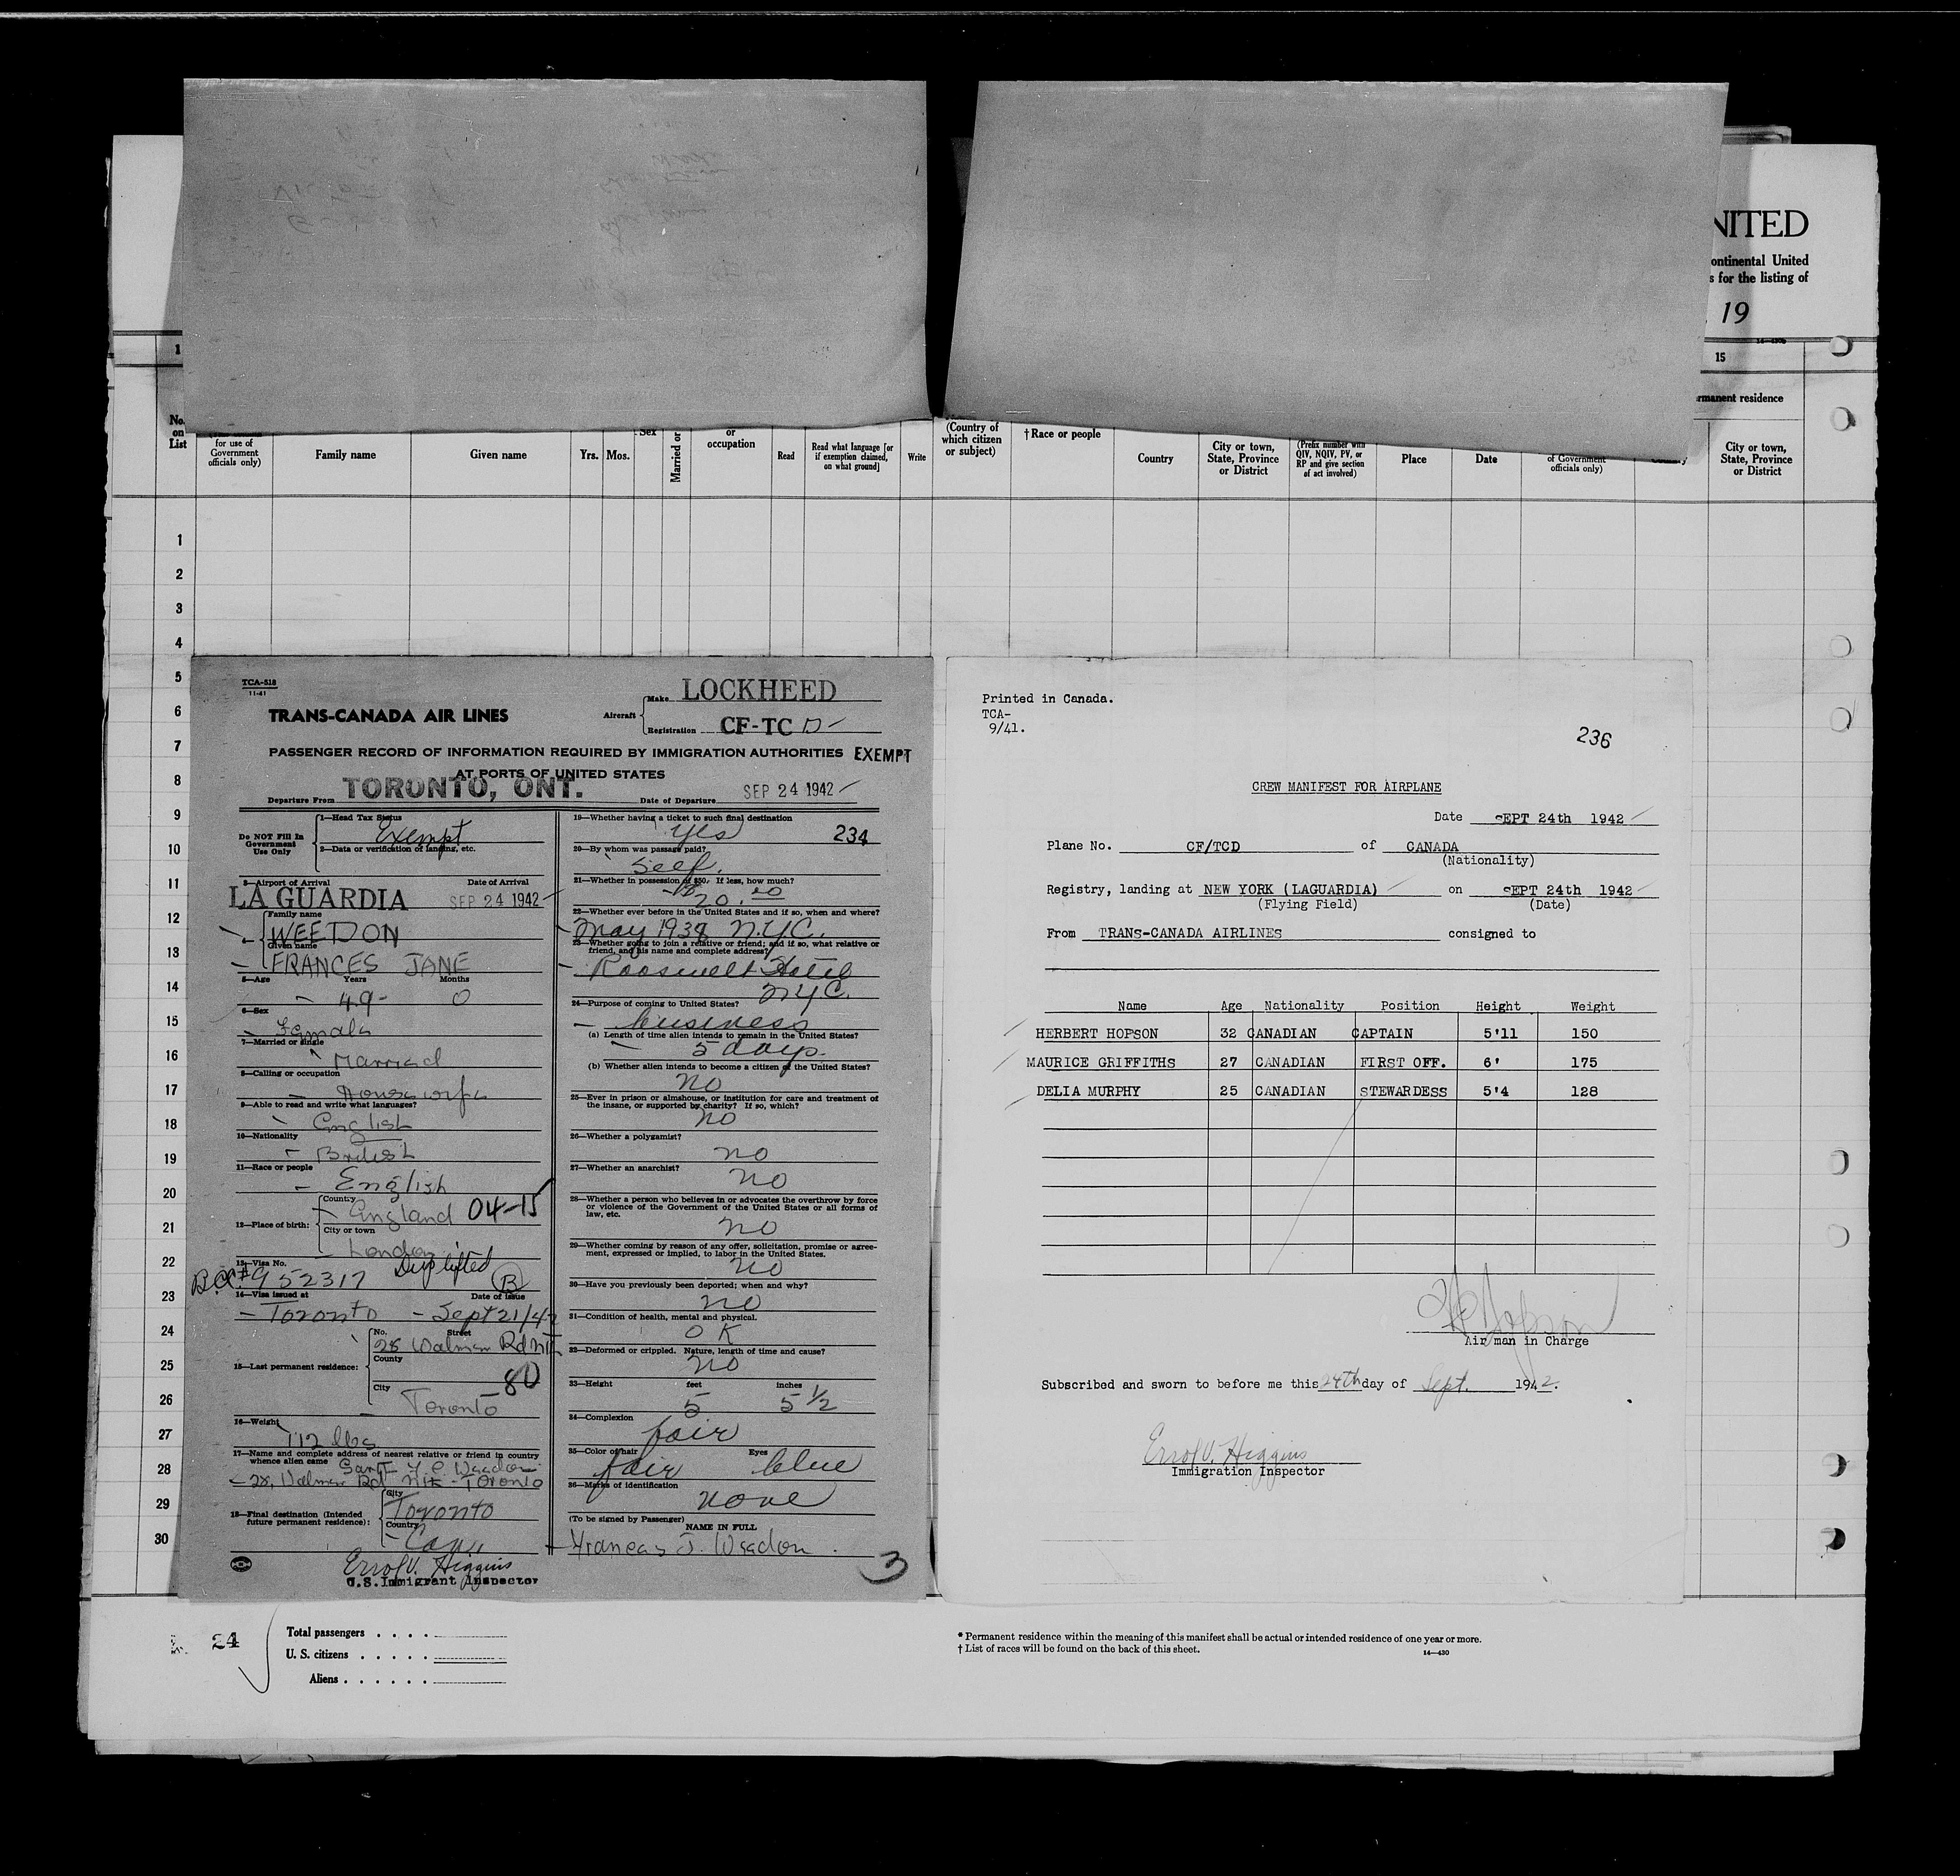 NITED
ontinental United
s for the listing of
, 19
1
15
rmanent residence
No. on List
for use of Government officials only)
Family name
Given name
Yrs.
Mos.
Sex
Married or
or occupation
Read
Read what language [or if exemption claimed, on what ground]
Write
(Country of which citizen or subject)
†Race or people
Country
City or town, State, Province or District
(Prefix number with QIV, NQIV, PV, or RP and give section of act involved)
Place
Date
of Government officials only)
City or town, State, Province or District
1
2
3
4
5
6
7
8
9
10
11
12
13
14
15
16
17
18
19
20
21
22
23
24
25
26
27
28
29
30
TCA-518
11-41
TRANS-CANADA AIR LINES
Aircraft
Make LOCKHEED
Registration CF-TC D
PASSENGER RECORD OF INFORMATION REQUIRED BY IMMIGRATION AUTHORITIES EXEMPT
AT PORTS OF UNITED STATES
Departure From TORONTO, ONT.
Date of Departure SEP 24 1942
Do NOT Fill in Government Use Only
1—Head Tax Status
Exempt
2—Data or verification of landing, etc.
3—Airport of Arrival Date of Arrival
LA GUARDIA SEP 24 1942
Family name
WEEDON
Given name
FRANCES JANE
5—Age Years Months
49 - 0
6—Sex
Female
7—Married or single
Married
8—Calling or occupation
Housewife
9—Able to read and write what languages?
English
10—Nationality
British
11—Race or people
English
12—Place of birth:
Country
England 04-15
City or town
London
13—Visa No. Dup lifted
B.C.C.# 952317 B
14—Visa issued at Date of Issue
Toronto - Sept 21/42
15—Last permanent residence:
No. Street
28 Walmer Rd
County
80
City
Toronto
16—Weight
112 lbs
17—Name and complete address of nearest relative or friend in country
whence alien came
28, Walmer Rd - Toronto
18—Final destination (Intended future permanent residence):
City
Toronto
Country
Can
Errol V. Higgins
U.S. Immigrant Inspector
19—Whether having a ticket to such final destination
yes 234
20—By whom was passage paid?
Self.
21—Whether in possession of $50. If less, how much?
20.00
22—Whether ever before in the United States and if so, when and where?
May 1938 N.Y.C.
23—Whether going to join a relative or friend; and if so, what relative or
friend, and his name and complete address?
Roosevelt Hotel
N.Y.C.
24—Purpose of coming to United States?
business
(a) Length of time alien intends to remain in the United States?
5 days.
(b) Whether alien intends to become a citizen of the United States?
no
25—Ever in prison or almshouse, or institution for care and treatment of
the insane, or supported by charity? If so, which?
no
26—Whether a polygamist?
no
27—Whether an anarchist?
no
28—Whether a person who believes in or advocates the overthrow by force
or violence of the Government of the United States or all forms of
law, etc.
no
29—Whether coming by reason of any offer, solicitation, promise or agree-
ment, expressed or implied, to labor in the United States.
no
30—Have you previously been deported; when and why?
no
31—Condition of health, mental and physical.
OK
32—Deformed or crippled. Nature, length of time and cause?
no
33—Height feet inches
5 5 1/2
34—Complexion
fair
35—Color of hair Eyes
fair blue
36—Marks of identification
none
(To be signed by Passenger)
NAME IN FULL
Frances J. Weedon.
3
Printed in Canada.
TCA-
9/41.
236
CREW MANIFEST FOR AIRPLANE
Date SEPT 24th 1942
Plane No. CF/TCD of CANADA
(Nationality)
Registry, landing at NEW YORK (LAGUARDIA) on SEPT 24th 1942
(Flying Field) (Date)
From TRANS-CANADA AIRLINES consigned to
Name Age Nationality Position Height Weight
HERBERT HOPSON 32 CANADIAN CAPTAIN 5'11 150
MAURICE GRIFFITHS 27 CANADIAN FIRST OFF. 6' 175
DELIA MURPHY 25 CANADIAN STEWARDESS 5'4 128
H Hopson
Air man in Charge
Subscribed and sworn to before me this 24th day of Sept. 1942.
Errol V. Higgins
Immigration Inspector
24
Total passengers . . . .
U. S. citizens . . . . .
Aliens . . . . . .
* Permanent residence within the meaning of this manifest shall be actual or intended residence of one year or more.
† List of races will be found on the back of this sheet.
14—430